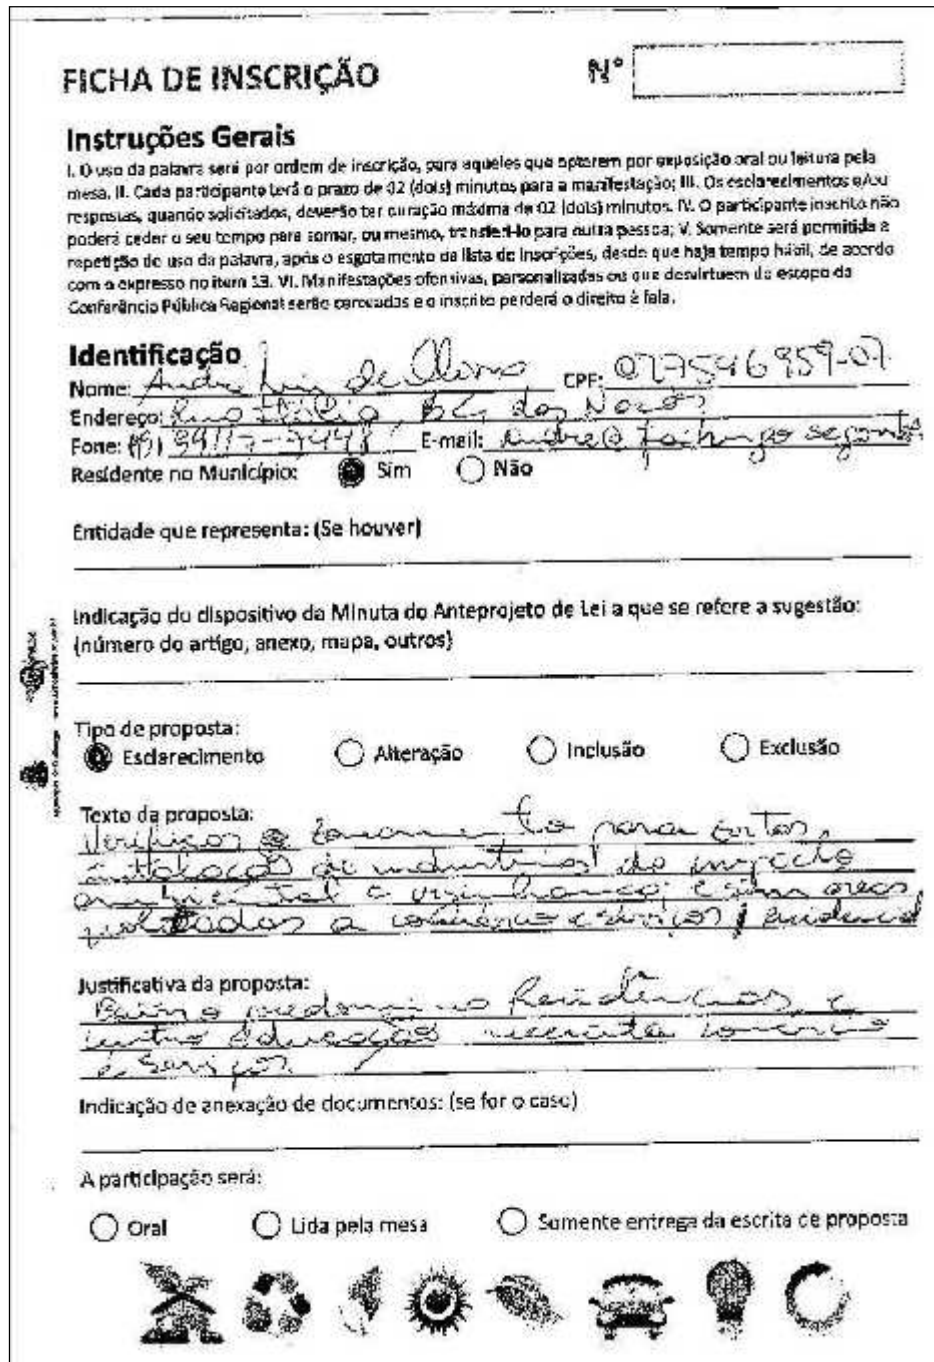 FICHA DE INSCRIÇÃO
N°
Instruções Gerais
I. O uso da palavra será por ordem de inscrição, para aqueles que optarem por exposição oral ou leitura pela
mesa. II. Cada participante terá o prazo de 02 (dois) minutos para a manifestação; III. Os esclarecimentos e/ou
respostas, quando solicitados, deverão ter duração máxima de 02 (dois) minutos. IV. O participante inscrito não
poderá ceder o seu tempo para somar, ou mesmo, transferi-lo para outra pessoa; V. Somente será permitida a
repetição do uso da palavra, após o esgotamento da lista de inscrições, desde que haja tempo hábil, de acordo
com o expresso no item 13. VI. Manifestações ofensivas, personalizadas ou que desvirtuem do escopo da
Conferência Pública Regional serão censuradas e o inscrito perderá o direito à fala.
Identificação
Nome: André Luiz de CPF: 077546959-07
Endereço: Rua Itália, dos
Fone: (49) 99117-7448 E-mail: andre@
Residente no Município: Sim Não
Entidade que representa: (Se houver)
Indicação do dispositivo da Minuta do Anteprojeto de Lei a que se refere a sugestão:
(número do artigo, anexo, mapa, outros)
Tipo de proposta:
Esclarecimento Alteração Inclusão Exclusão
Texto da proposta:
para evitar
de industrias de impacto
ambiental e vizinhança e sim areas
a comércio e serviços / residencial
Justificativa da proposta:
Bairro predomina Residências e
educação necessita comercio
e Serviços
Indicação de anexação de documentos: (se for o caso)
A participação será:
Oral Lida pela mesa Somente entrega da escrita de proposta